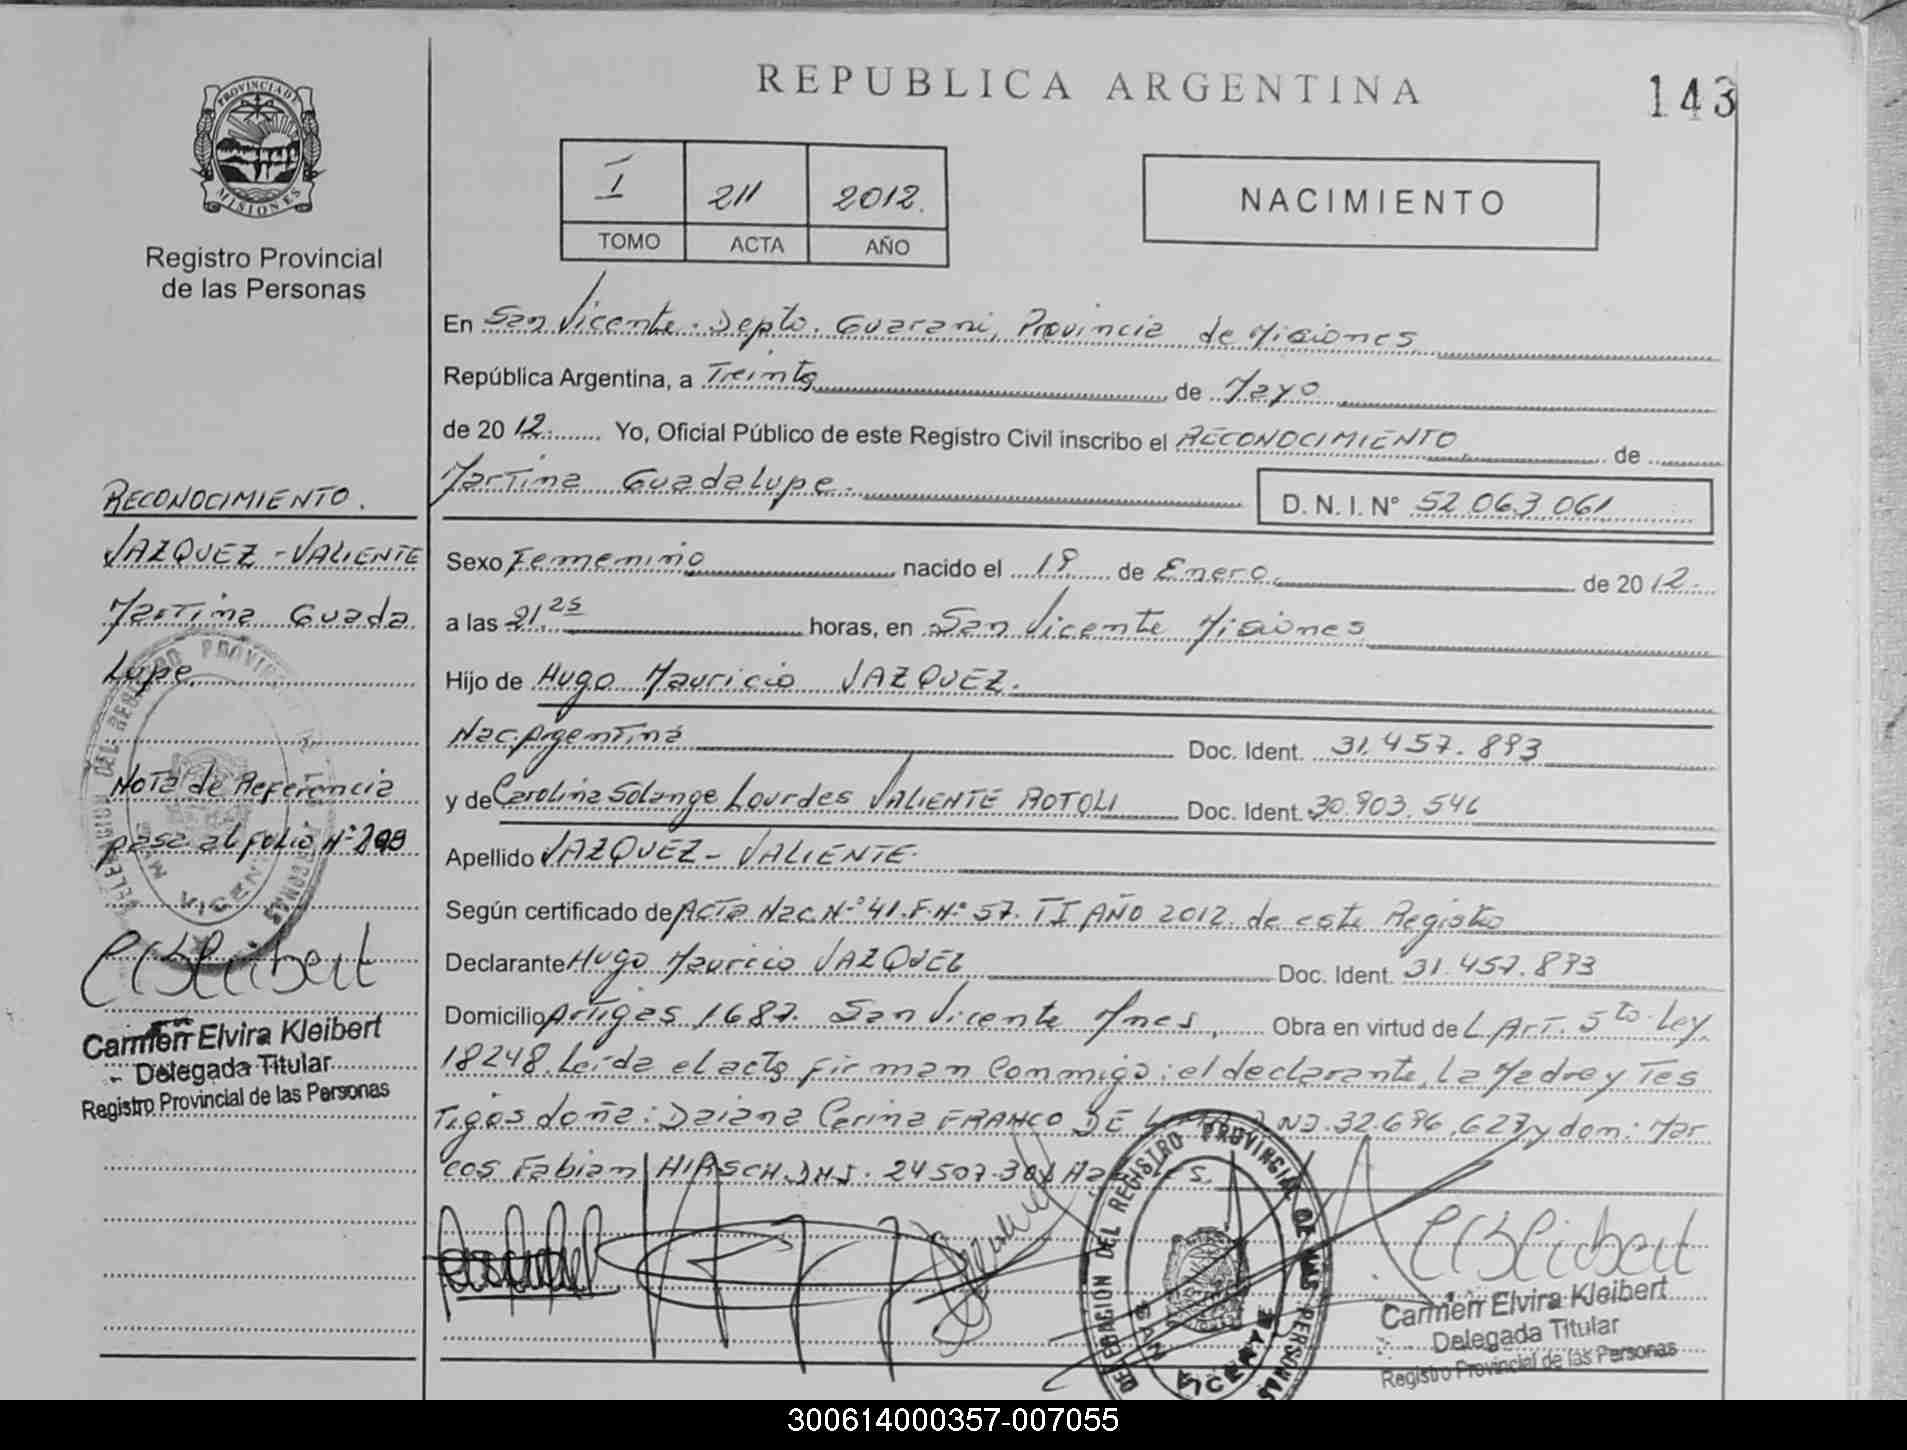 REPUBLICA ARGENTINA
143
PROVINCIA DE
MISIONES
Registro Provincial
de las Personas
I 211 2012.
TOMO ACTA AÑO
NACIMIENTO
En San Vicente. Depto. Guarani, Provincia de Misiones
República Argentina, a Treinta de Mayo
de 2012. Yo, Oficial Público de este Registro Civil inscribo el RECONOCIMIENTO de
Martina Guadalupe.
D. N. I. Nº 52.063.061
Sexo Femenino nacido el 18 de Enero de 2012.
a las 21.25 horas, en San Vicente Misiones
Hijo de Hugo Mauricio VAZQUEZ.
Nac. Argentina Doc. Ident. 31.457.893
y de Carolina Solange Lourdes VALIENTE ROTOLI Doc. Ident. 30.903.546
Apellido VAZQUEZ - VALIENTE.
Según certificado de Acta Nac. Nº 41. F. Nº 57. TI AÑO 2012. de este Registro
Declarante Hugo Mauricio VAZQUEZ Doc. Ident. 31.457.893
Domicilio Artigas 1687. San Vicente Mnes, Obra en virtud de L. Art. 5to. Ley
18248. Leída el acta firman conmigo: el declarante, La Madre y Tes
Tigos doña: Daiana Carina FRANCO DE 32.696.627 y don: Mar
cos Fabian HIRSCH. DNI. 24507.
RECONOCIMIENTO.
VAZQUEZ - VALIENTE
Martina Guada
Lupe
Nota de Referencia
pasa al folio Nº
CEKleibert
Carmen Elvira Kleibert
Delegada Titular
Registro Provincial de las Personas
DELEGACION DEL REGISTRO PROVINCIAL DE LAS PERSONAS
SAN VICENTE
CEKleibert
Carmen Elvira Kleibert
Delegada Titular
Registro Provincial de las Personas
300614000357-007055